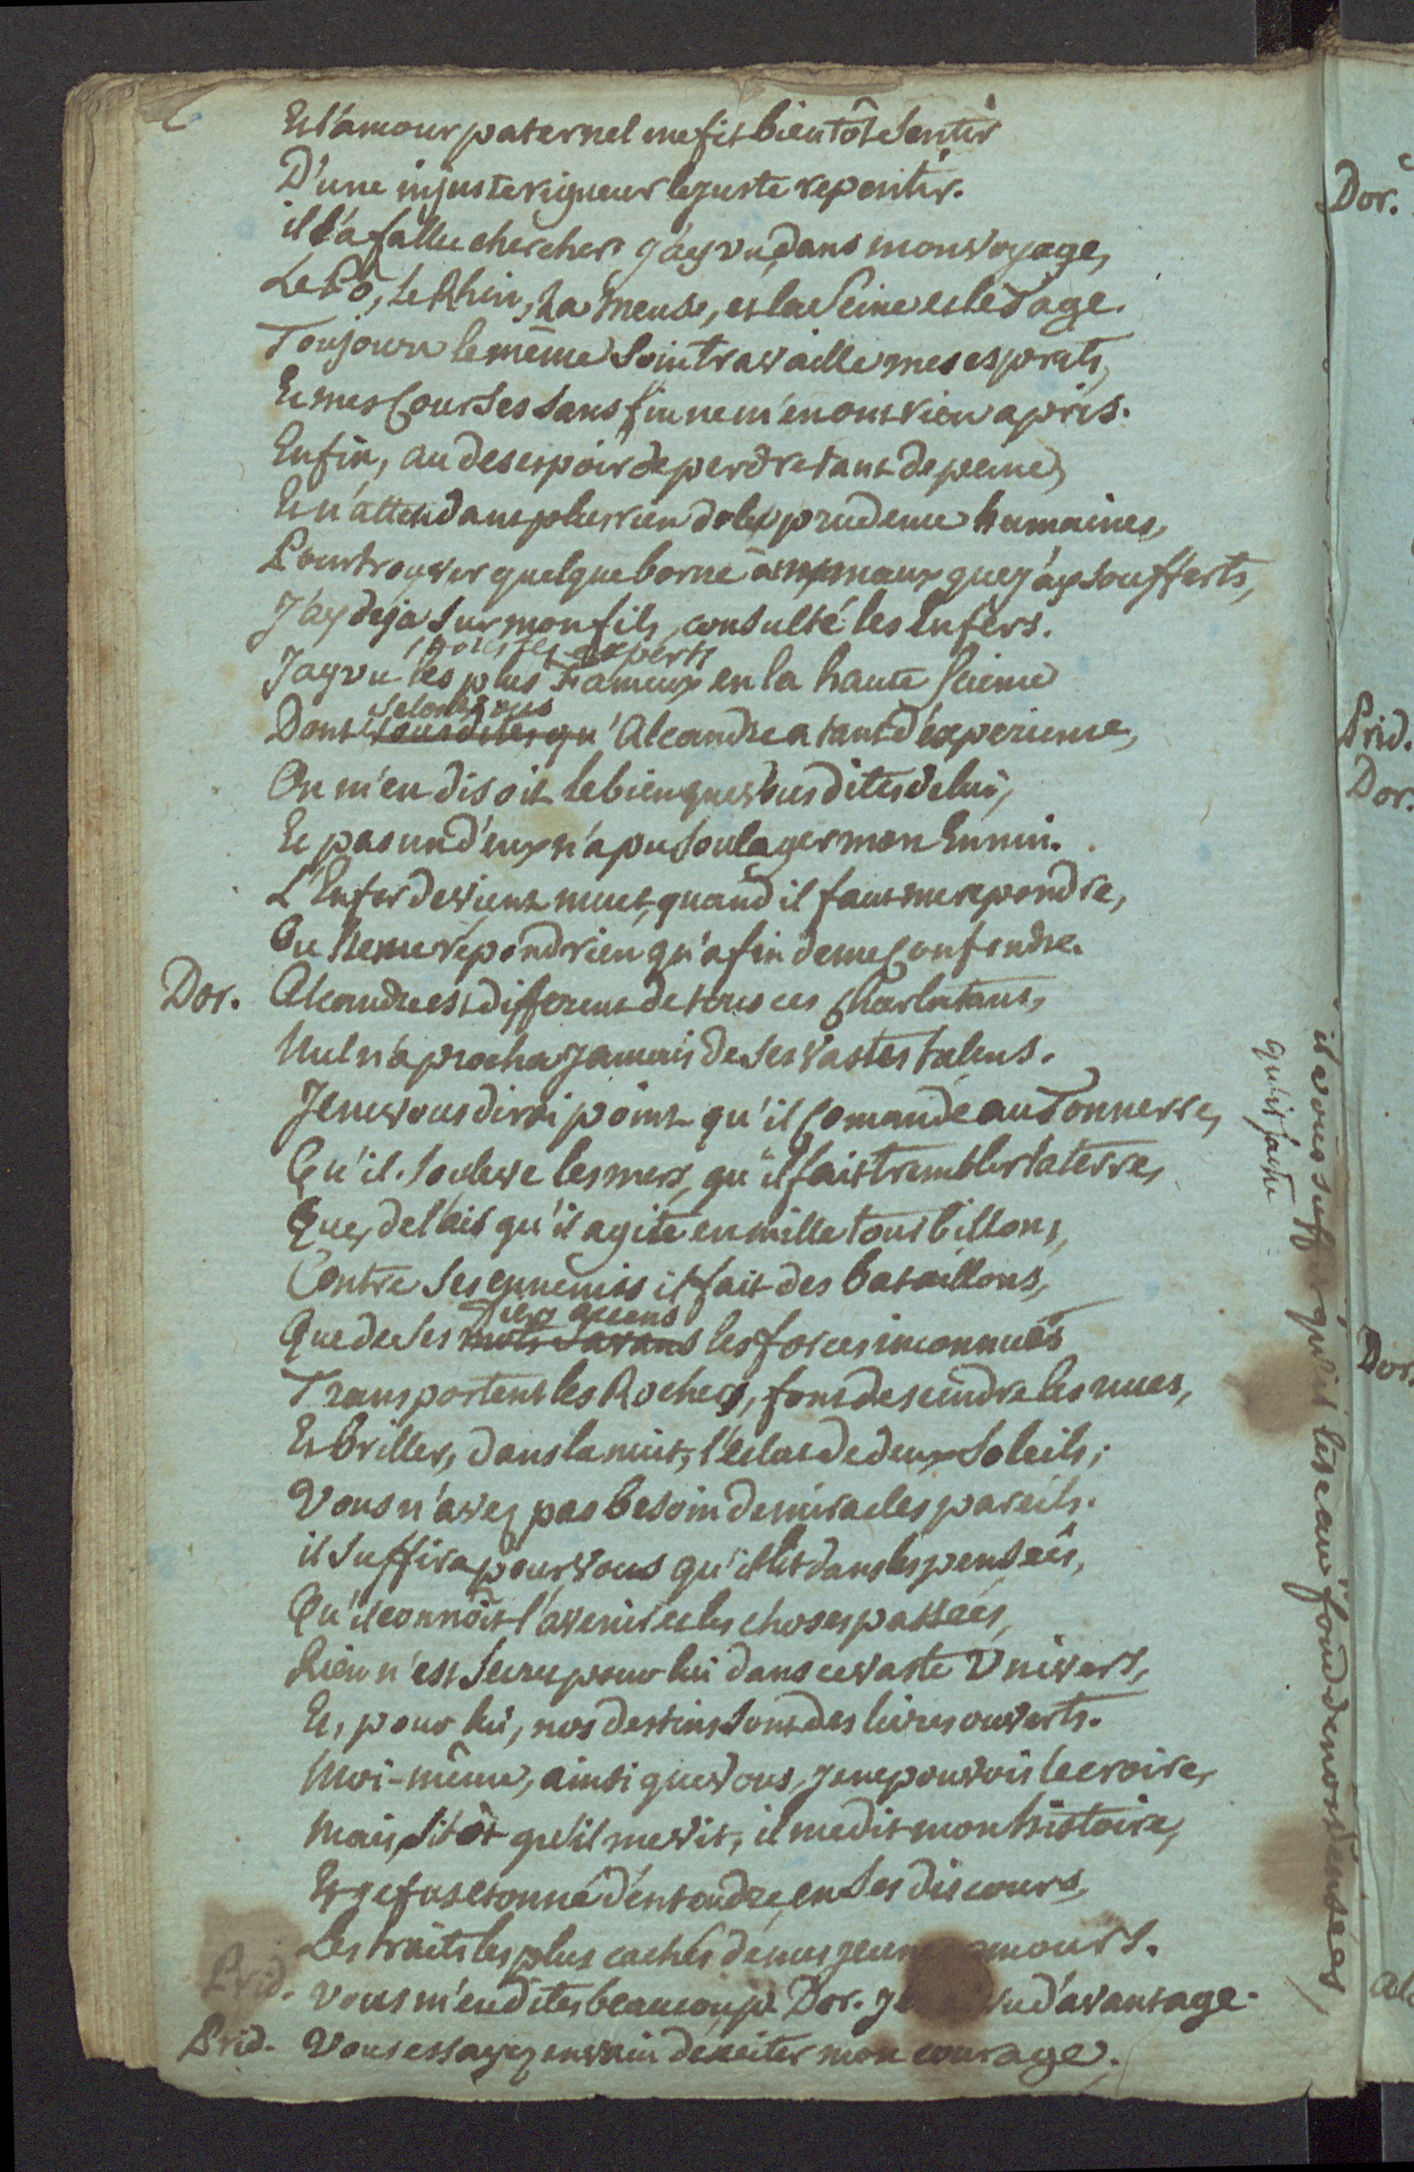 Et l'amour paternel me fit bientôt sentir
D'une injuste rigueur le juste repentir.
il l'a fallu chercher j'ay vu, dans mon voyage,
Le Pô, le Rhin, La Meuse, et la Seine et le Tage.
Toujours le même soin travaille mes esprits,
Et mes Courses sans fin ne m'en ont rien apris.
Enfin, au desespoir de perdre tant de peine,
Et n'attendant plus rien de la prudence humaine,
Pour trouver quelque borne à mes maux que j'ay soufferts,
J'ay deja sur mon fils, consulté les Enfers.
experts
J'ay vu les plus Fameux en la haute science
Selon vous
Dont vous dites qu'Alcandre a tant d'experience,
On m'en disoit le bien que vous dites de lui,
Et pas un d'eux n'a pu soulager mon Ennui.
L'Enfer devient muet, quand il faut me repondre,
Ou ne me répond rien qu'afin de me Confondre.
Dor. Alcandre est different de tous ces Charlatans,
Nul n'aprocha jamais de ses vastes talens.
Je ne vous dirai point qu'il Comande au Tonnerre,
Qu'il souleve les mers, qu'il fait trembler la terre,
Que, de l'air qu'il agite en mille tourbillons,
Contre ses ennemis il fait des bataillons,
fiers accens
Que de ses mots savans les forces inconnuës
Transportent les Rochers, font descendre les nues,
Et briller, dans la nuit, l'éclat de deux Soleils;
Vous n'avez pas besoin de miracles pareils.
il suffira pour vous qu'il lit dans les pensées,
Qu'il connoit l'avenir et les choses passées,
Rien n'est Secret pour lui dans ce vaste Univers,
Et, pour lui, nos destins sont des livres ouverts.
Moi-même, ainsi que vous, je ne pouvois le croire,
Mais, sitôt qu'il me vit, il me dit mon histoire,
Et je fus etonné d'entendre, en ses discours,
Les traits les plus cachés de mes jeunes amours.
Prid. Vous m'en dites beaucoup. Dor. J'en ai vu d'avantage.
Prid. Vous essayez en vain d'exciter mon courage.
il vous suff qu'il lise au fond de nos pensées
qu'il sache
Dor.
Prid.
Dor.
Dor.